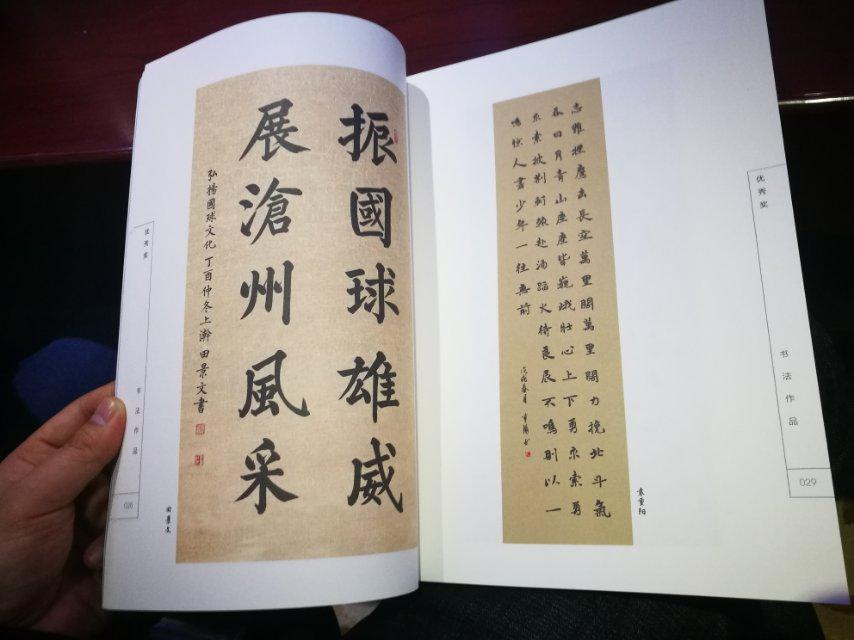 振國球雄威
展滄州風采
弘揚國球文化 丁酉仲冬上瀚 田景文書
优秀奖
书法作品
田景文
鷹击長空萬里闊萬里闊力挽北斗氣
吞日月青山座座皆巍峨壯心上下勇求索勇
求索披荊斬棘赴湯蹈火待良辰不鳴則以一
鳴惊人書少年一往無前
戊戌春月 重陽书
袁重阳
优秀奖
书法作品
029